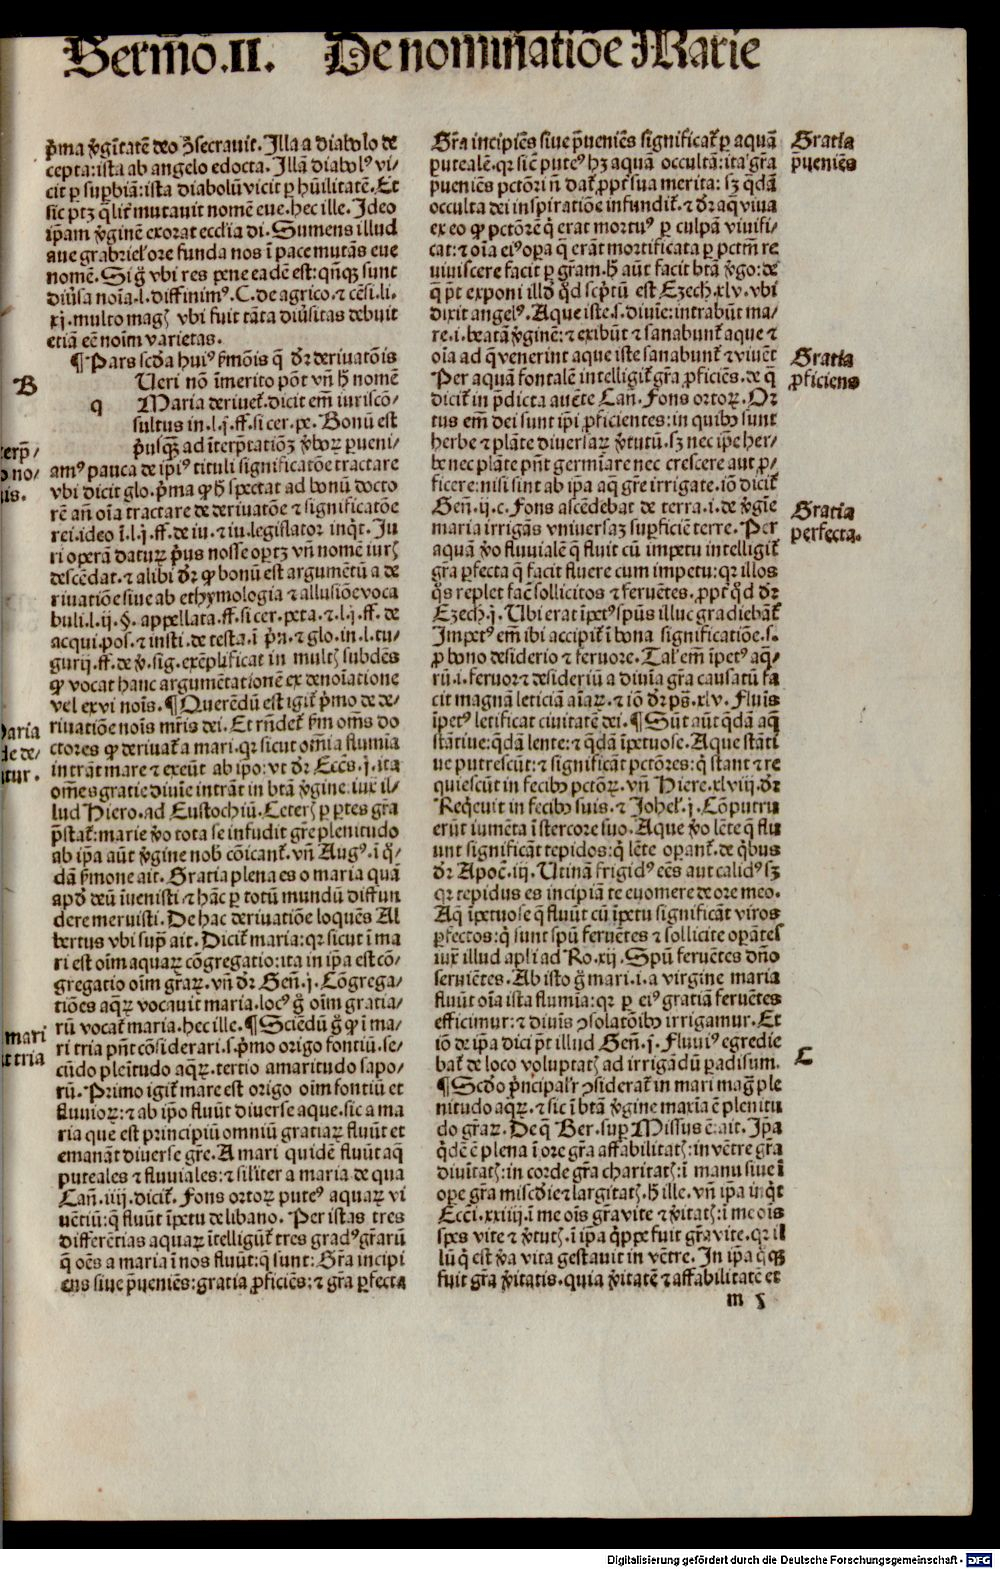 Sermo̅.II. De nominatio̅e Marie
p̓ma v̓gi̅tate̅ deo ꝯsecrauit. Illa a diabolo de
cepta: ista ab angelo edocta. Illa̅ diabolꝰ vi-
cit ꝑ suꝑbia̅: ista diabolu̅ vicit ꝑ hu̅ilitate̅. Et
sic ptꝫ q̄liƭ mutauit nome̅ eue. hec ille. Ideo
ip̅am v̓gine̅ exorat eccl̓ia di. Sumens illud
aue gabriel̓ ore funda nos i̅ pace muta̅s eue
nome̅. Si g̊ vbi res pene eade̅ est: qn̅qꝫ sunt
diu̓sa no̅ia. l. diffinimꝰ. C. de agrico. ⁊ ce̅si. li.
xj. multo magꝭ vbi fuit ta̅ta diu̓sitas debuit
etia̅ ee̅ no̅im varietas.
¶ Pars sc̅da huiꝰ s̓mo̅is q̅ dr̅ deriuato̅is
B
Ueri no̅ i̅merito po̅t vn̅ h̅ nome̅
q Maria deriuet̓. dicit em̅ iurisco̅-
sultus in. l. j. ff. si cer. pe. Bonu̅ est
p̓usqꝫ ad i̅terp̓tatio̅ꝫ v̓boꝝ pueni-
amꝰ pauca de ip̅iꝰ tituli significato̅e tractare
vbi dicit glo. p̓ma ꝙ h̅ spectat ad bonu̅ docto
re̅ an̅ o̅ia tractare de deriuato̅e ⁊ significato̅e
rei. ideo i̅. l. j. ff. de iu. ⁊ iu. legislator inq̓t. Ju
ri opera̅ daturꝝ p̓us nosse oꝑtꝫ vn̅ nome̅ iurꝭ
desce̅dat. ⁊ alibi dr̅ ꝙ bonu̅ est argume̅tu̅ a de
riuatio̅e siue ab ethymologia ⁊ allusio̅e voca
buli. l. ij. §. appellata. ff. si cer. peta. ⁊ l. j. ff. de
acqui. pos. ⁊ insti. de testa. i̅ p̓n. ⁊ glo. in. l. tu-
gurij. ff. de v̓. sig. exe̅plificat in multꝭ subde̅s
ꝙ vocat hanc argume̅tatione̅ ex deno̅iatione
vel ex vi no̅is. ¶ Quere̅du̅ est igit̓ p̓mo de de-
riuatio̅e no̅is mr̅is dei. Et rn̅det̓ s̓m om̅s do
ctores ꝙ deriuat̓ a mari. qr sicut om̅ia flumi̅a
intra̅t mare ⁊ exeu̅t ab ip̅o: vt dr̅ Ecc̅s. j. ita
om̅es gratie diui̅e intra̅t in bt̅a v̓gine. iux̅ il-
lud Hiero. ad Eustochiu̅. Ceterꝭ ꝑ ꝑtes gr̅a
p̓stat̓: marie v̓o tota se infudit gr̅e plenitudo
ab ip̅a aut̅ v̓gine nob̅ co̅icant̓. vn̅ Augꝰ. i̅ q̓-
da̅ s̓mone ait. Gratia plena es o maria qua̅
apd̓ deu̅ i̅uenisti ⁊ ha̅c ꝑ totu̅ mundu̅ diffun
dere meruisti. De hac deriuatio̅e loque̅s Al
bertus vbi sup̓ ait. Dicit̓ maria: qr sicut i̅ ma
ri est o̅im aquaꝝ co̅gregatio: ita in ip̅a est co̅-
gregatio o̅im gr̅aꝝ. vn̅ dr̅ Gen̅. j. Co̅grega-
tio̅es aq̅ꝝ vocauit maria. locꝰ g̊ o̅im gratia-
ru̅ vocat̓ maria. hec ille. ¶ Scie̅du̅ g̊ ꝙ i̅ ma-
ri tria pn̅t co̅siderari. s. p̓mo origo fontiu̅. se-
cu̅do plei̅tudo aq̅ꝝ. tertio amaritudo sapo-
ru̅. Primo igit̓ mare est origo o̅im fontiu̅ et
fluuioꝝ: ⁊ ab ip̅o fluu̅t diuerse aque. sic a ma
ria que est principiu̅ omniu̅ gratiaꝝ fluu̅t et
emana̅t diuerse gr̅e. A mari quide̅ fluu̅t aq̅
puteales ⁊ fluuiales: ⁊ sil̓iter a maria de qua
Can̅. iiij. dicit̓. Fons ortoꝝ puteꝰ aquaꝝ vi
ue̅tiu̅: q̅ fluu̅t i̅petu de libano. Per istas tres
differe̅tias aquaꝝ i̅telligu̅t̓ tres gradꝰ gr̅aru̅
q̅ oe̅s a maria i̅ nos fluu̅t: q̅ sunt: Gr̅a incipi
ens siue p̓uenie̅s: gratia ꝓficie̅s: ⁊ gr̅a ꝑfecta
Gr̅a incipie̅s siue p̓uenie̅s significat̓ ꝑ aqua̅
puteale̅. qr sic̅ puteꝰ hꝫ aqua̅ occulta̅: ita gr̅a
pueniẽs pcto̅ri n̅ dat̓ ꝓpt̓ sua merita: sꝫ q̅da̅
occulta dei inspiratio̅e infundit̓. ⁊ dr̅ aq̅ viua
ex eo ꝙ pcto̅re̅ q̓ erat mortuꝰ ꝑ culpa̅ viuifi-
cat: ⁊ o̅ia eiꝰ oꝑa q̅ era̅t mortificata ꝑ pctm̅ re
uiuiscere facit ꝑ gr̅am. h̅ aut̅ facit bt̅a v̓go: de
q̅ p̅t exponi illd̓ qd̓ scp̓tu̅ est Ezech. xlv. vbi
dixit angelꝰ. Aque iste. s. diuie̅: intrabu̅t ma-
re. i. beata̅ v̓gine̅: ⁊ exibu̅t ⁊ sanabunt̓ aque ⁊
o̅ia ad q̅ venerint aque iste sanabunt̓ ⁊ viue̅t
Per aqua̅ fontale̅ intelligit̓ gr̅a ꝓficie̅s. de q̅
dicit̓ in p̓dicta aucte̅ Can̅. Fons ortoꝝ. Or
tus em̅ dei sunt ip̅i ꝓficientes: in quibꝰ sunt
herbe ⁊ pla̅te diuersaꝝ v̓tutu̅. sꝫ nec ip̅e her-
be nec plate pn̅t germi̅are nec crescere aut ꝓ-
ficere: nisi sint ab ip̅a aq̅ gr̅e irrigate. io̅ dicit̓
Gen̅. ij. c. Fons asce̅debat de terra. i. de v̓gi̅e
maria irriga̅s vniuersaꝫ suꝑficie̅ terre. Per
aqua̅ v̓o fluuiale̅ q̅ fluit cu̅ impetu intelligit̓
gr̅a ꝑfecta q̅ facit fluere cum impetu: qr illos
q̓s replet fac̅ sollicitos ⁊ ferue̅tes. ꝓpt̓ qd̓ dr̅
Ezech. j. Ubi erat i̅petꝰ spu̅s illuc gradiebant̓
Impetꝰ em̅ ibi accipit̓ i̅ bona significatio̅e. s.
ꝓ bono desiderio ⁊ feruore. Tal̓ em̅ i̅petꝰ aq̅-
ru̅. i. feruor ⁊ desideriu̅ a diui̅a gr̅a causatu̅ fa
cit magna̅ leticia̅ ai̅aꝝ. ⁊ io̅ dr̅ ps̅. xlv. Flui̅s
i̅petꝰ letificat ciuitate̅ dei. ¶ Su̅t aut̅ q̅da̅ aq̅
sta̅tiue: q̅da̅ lente: ⁊ q̅da̅ i̅petuose. Aque sta̅ti
ue putrescu̅t: ⁊ significa̅t pcto̅res: q̓ stant ⁊ re
quiescu̅t in fecibꝰ pcto̅ꝝ. vn̅ Hiere. xlviij. dr̅
Req̓euit in fecibꝰ suis. ⁊ Johel̓. j. Co̅putru
eru̅t iume̅ta i̅ stercore suo. Aque v̓o le̅te q̅ flu
unt significa̅t tepidos: q̓ le̅te oꝑant̓. de q̓bus
dr̅ Apoc̅. iij. Utina̅ frigidꝰ ee̅s aut calidꝰ sꝫ
qr tepidus es incipia̅ te euomere de ore meo.
Aq̅ i̅petuose q̅ fluu̅t cu̅ i̅petu significa̅t viros
ꝑfectos: q̓ sunt spu̅ ferue̅tes ⁊ sollicite oꝑa̅tes
iux̅ illud apl̓i ad Ro. xij. Spu̅ ferue̅tes dn̅o
seruie̅tes. Ab isto g̊ mari. i. a virgine maria
fluu̅t o̅ia ista flumi̅a: qr ꝑ eiꝰ gratia̅ ferue̅tes
efficimur: ⁊ diui̅s ꝯsolato̅ibꝰ irrigamur. Et
io̅ de ipa dici p̅t illud Gen̅. j. Fluuiꝰ egredie
bat̓ de loco voluptatꝭ ad irrigadu̅ paradisum.
¶ Scd̅o p̓ncipal̓r ꝯsiderat̓ in mari mag̅ ple
nitudo aq̅ꝝ. ⁊ sic i̅ bt̅a v̓gine maria e̅ plenitu
do gr̅aꝝ. De q̅ Ber. suꝑ Missus e̅: ait. Ip̅a
q̓de̅ e̅ plena i̅ ore gr̅a affabilitatꝭ: in ve̅tre gr̅a
diui̅tatꝭ: in corde gr̅a charitatꝭ: i̅ manu siue i̅
oꝑe gr̅a misc̅die ⁊ largitatꝭ. h̅ ille. vn̅ ip̅a inq̓t
Ecc̅i. xxiiij. i̅ me o̅is gr̅a vite ⁊ v̓itatꝭ: i̅ me o̅is
spes vite ⁊ v̓tutꝭ. i̅ ip̅a q̓ppe fuit gr̅a vite. qr il
lu̅ q̓ est v̓a vita gestauit in ve̅tre. In ip̅a q̊qꝫ
fuit gr̅a v̓itatis. quia v̓itate̅ ⁊ affabilitate̅ et
m γ
Gratia
p̓uenie̅s
Gratia
ꝓficiens
Gratia
perfecta.
C